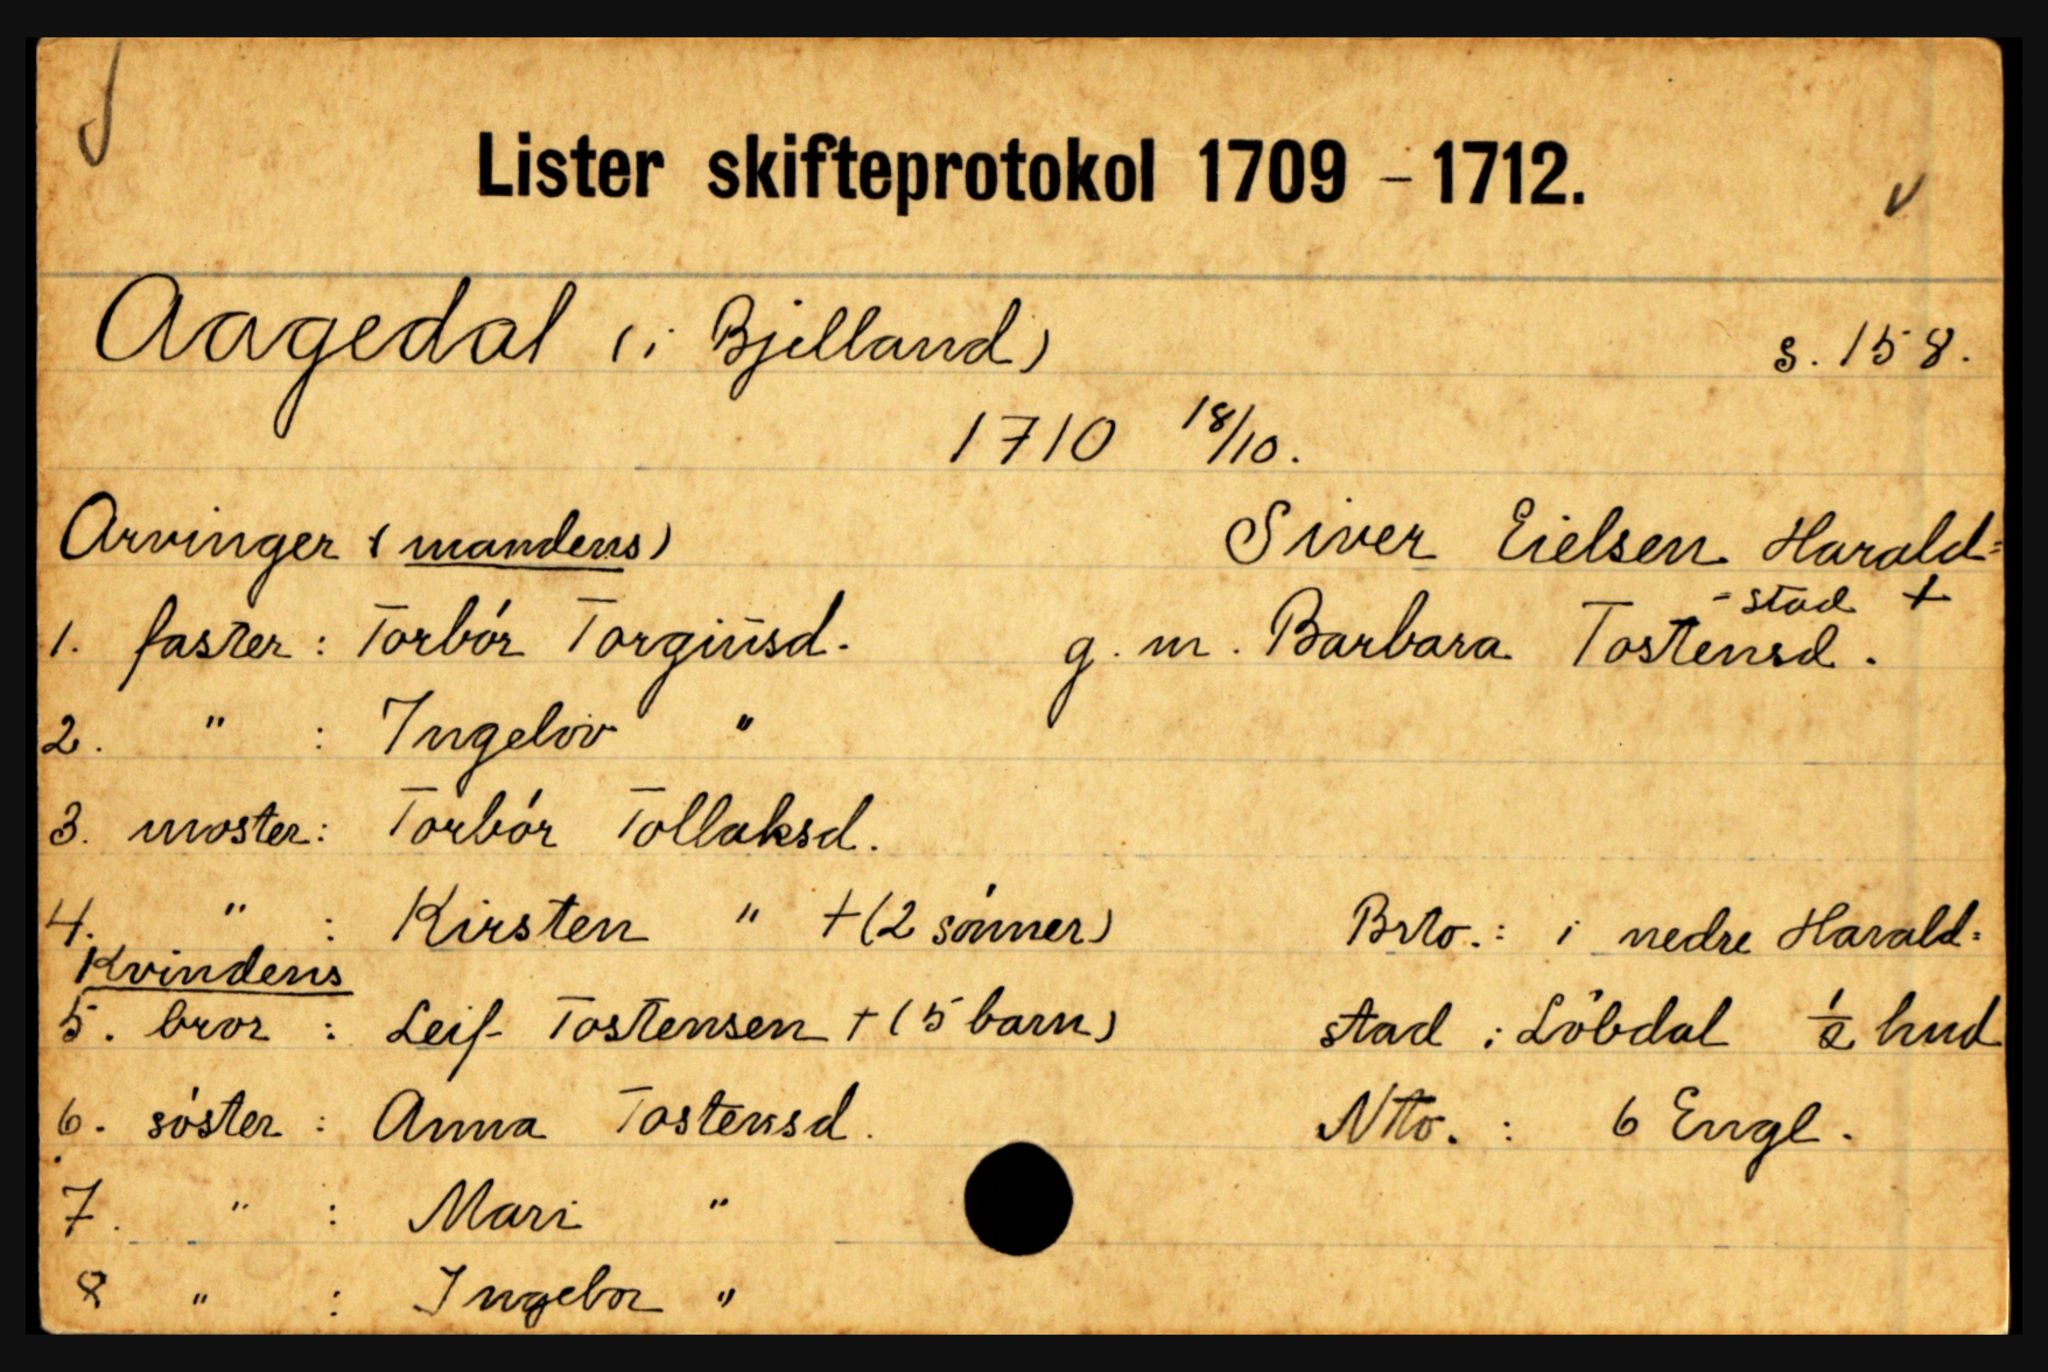 Lister skifteprotokol 1709 - 1712.
Aagedal (i Bjelland) s. 158.
1710 18/10.
Arvinger (mandens) Siver Eielsen Harald=
-stad +
1. faster: Torbór Torgiusd. g. m. Barbara Tostensd.
2. " : Ingelov "
3. moster: Torbór Tollaksd.
4. " : Kirsten " + (2 sónner) Brto.: i nedre Harald=
Kvindens
5. bror : Leif Tostensen + (5 barn) stad : Löbdal 1/2 hud
6. sóster : Anna Tostensd. Ntto. : 6 Engl.
7. " : Mari "
8 " : Ingebor "